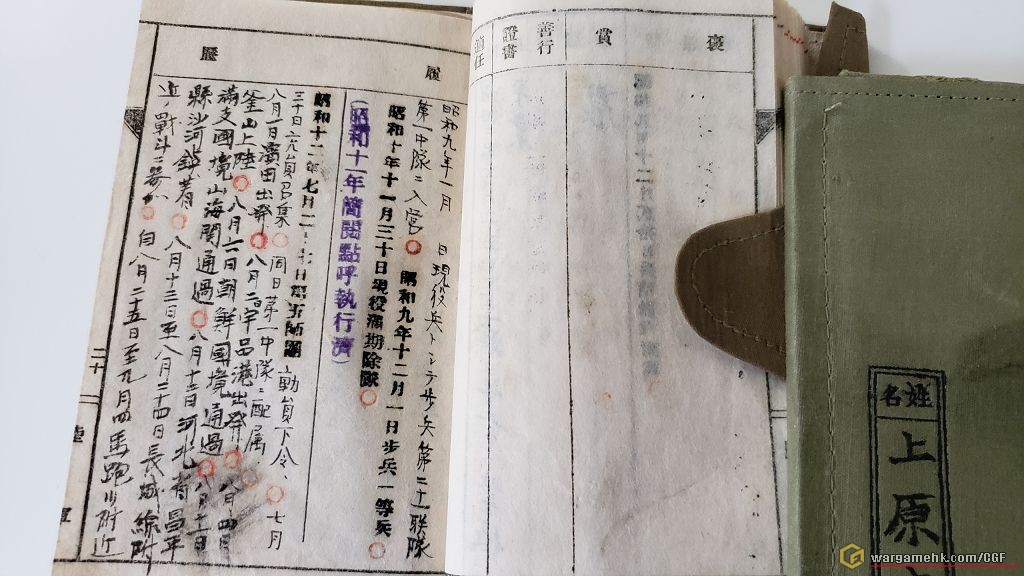 褒
賞
善行
證書
履
歷
昭和九年一月 日現役兵トシテ步兵第二十一聯隊
第一中隊ニ入營 昭和九年十二月一日步兵一等兵
昭和十年十一月三十日現役滿期除隊
(昭和十一年簡閱點呼執行濟)
昭和十二年七月二十七日第五師團動員下令、七月
三十日充員召集 同日第一中隊ニ配属
八月一日濱田出發 八月二日宇品港出發 八月四日
釜山上陸 八月六日朝鮮國境通過 八月
滿支國境山海關通過 八月十二日河北省昌平
縣沙河鎮着 八月十三日至八月二十四日長城線附
近ノ戰斗ニ參加 自八月二十五日至九月四馬跑附近
二十
姓名
上原
wargamehk.com/CGF